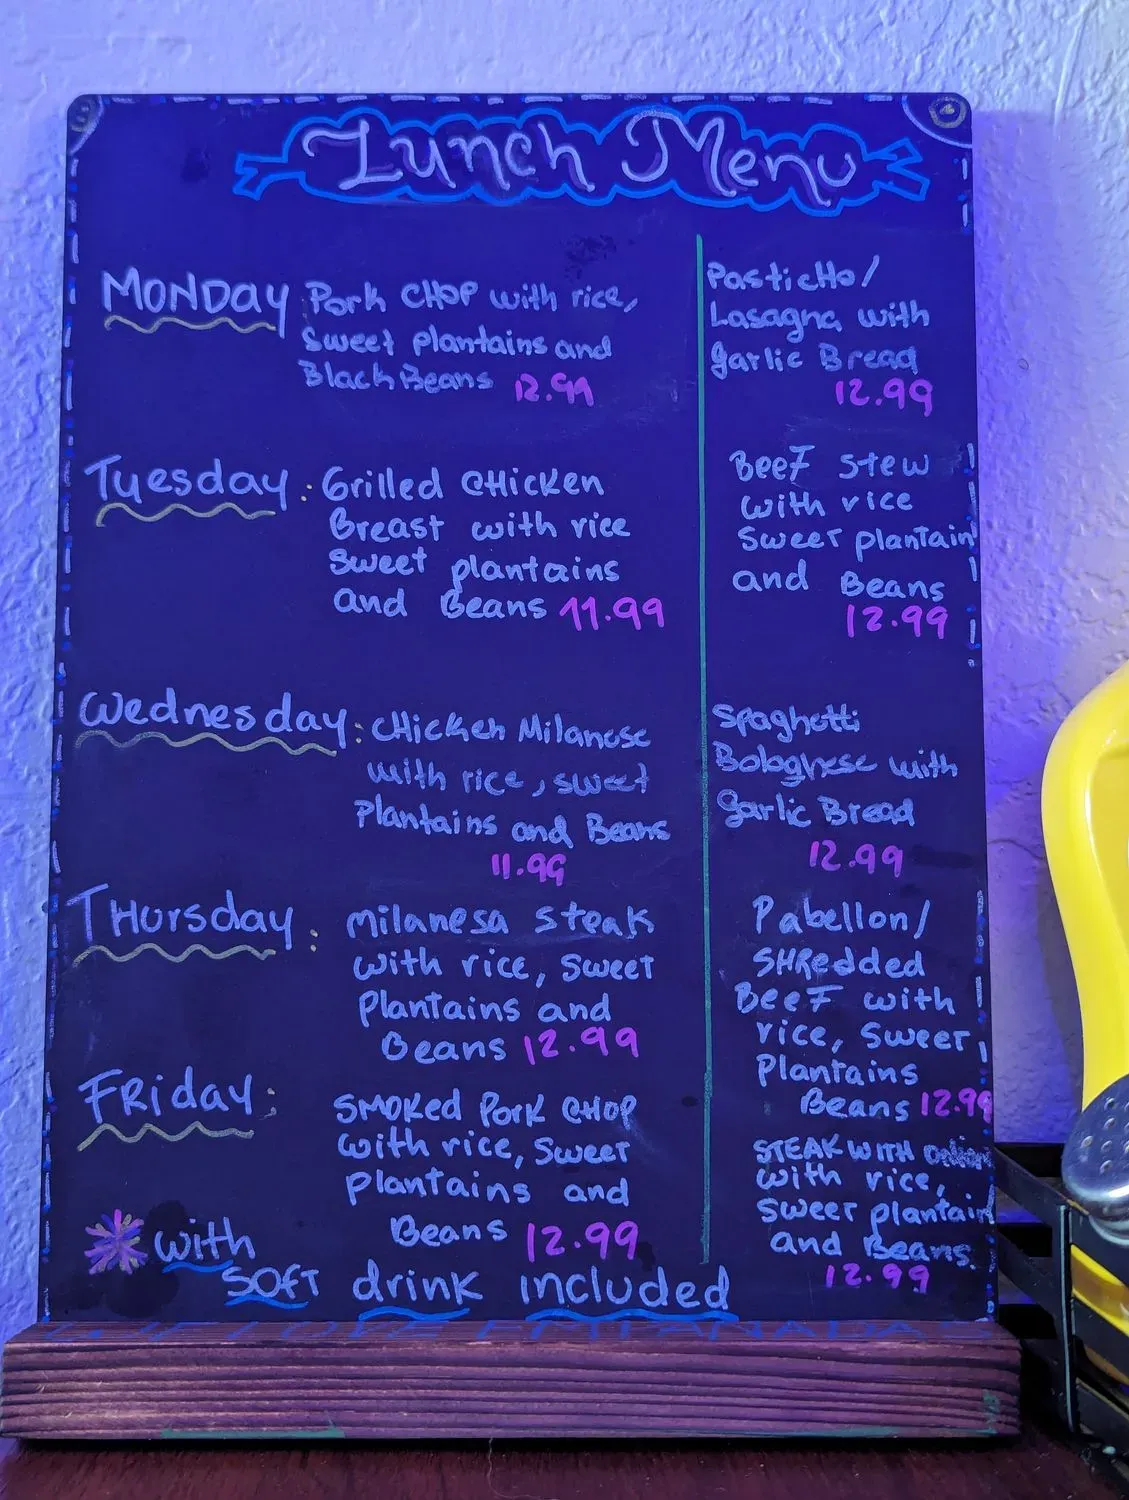 Lunch Menu
MONDAY Pork CHOP with rice,
Sweet plantains and
Black Beans 12.99
PasticHo/
Lasagna with
garlic Bread
12.99
Tuesday: Grilled CHicken
Breast with rice
Sweet plantains
and Beans 11.99
BeeF stew
with rice
Sweet plantain
and Beans
12.99
Wednesday: CHicken Milanese
with rice, sweet
Plantains and Beans
11.99
Spaghetti
Bolognese with
garlic Bread
12.99
THursday: Milanesa steak
with rice, Sweet
Plantains and
Beans 12.99
Pabellon/
SHRedded
BeeF with
rice, Sweet
Plantains
Beans 12.99
FRiday: SMOKed PorK CHOP
with rice, Sweet
plantains and
Beans 12.99
STEAK WITH onion
with rice,
Sweet plantain
and Beans.
12.99
with
SOFT drink included